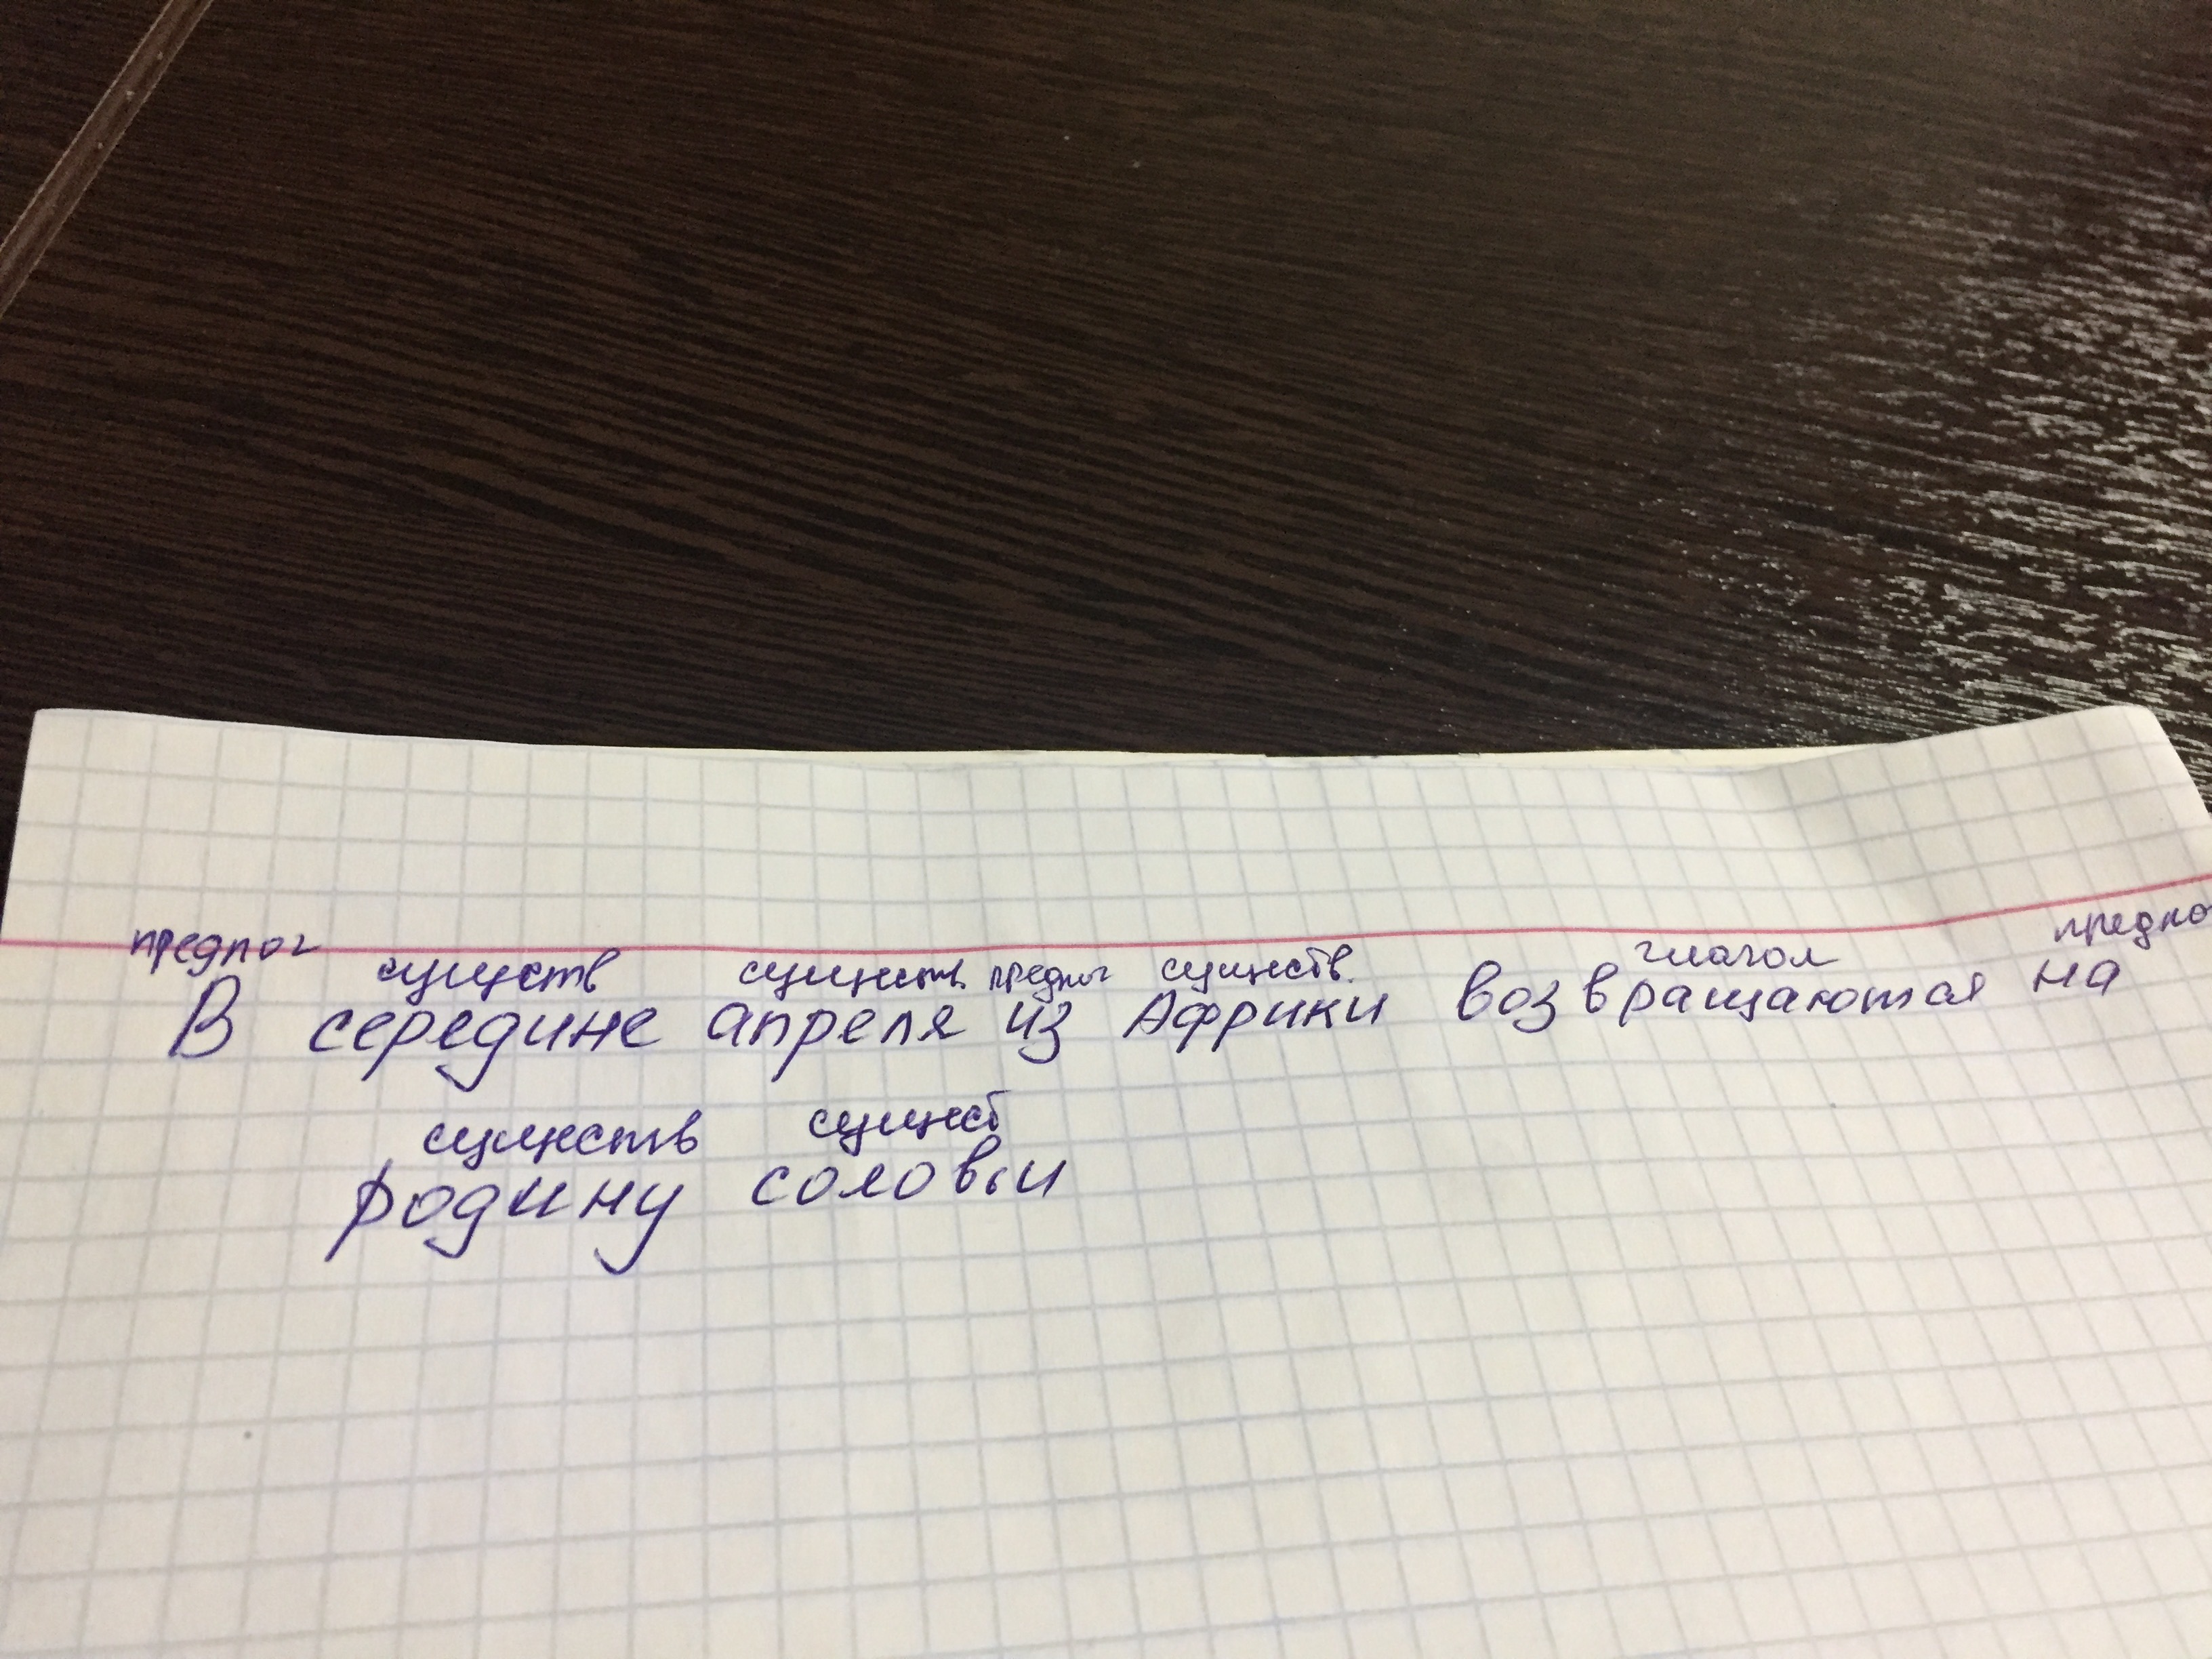 предлог существ существ. предлог существ. глагол предло
В середине апреля из Африки возвращаются на
существ сущест
родину соловьи